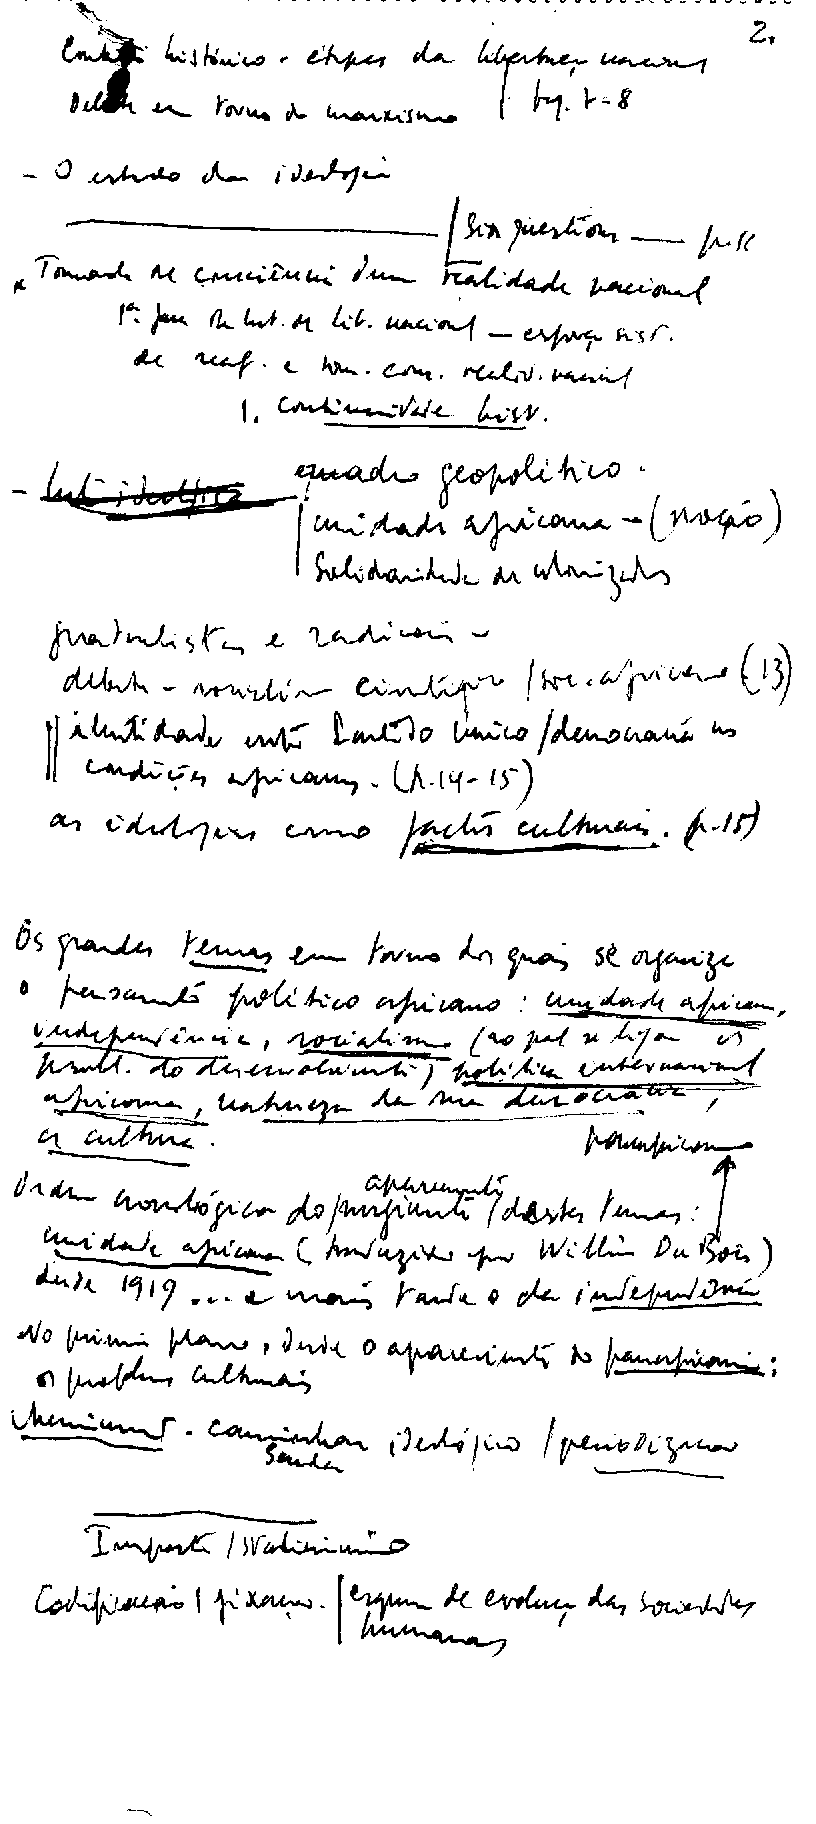 2.
histórico - etapas da
em torno do marxismo | pg. 7-8
- O estudo da ideologia
Six questions — p.
x Tomada de consciência duma realidade nacional
1ª fase da lut. de lib. nacional — esforço sist.
de reaf. e tom. con. realid. nacional
1. Continuidade hist.
- quadro geopolítico.
unidade africana - (noção)
Solidariedade de colonizados
gradualistas e radicais -
debate - socialismo científico / soc. africano (13)
identidade entre Partido único / democracia nas
condições africanas. (p. 14-15)
as ideologias como factos culturais. (p. 15)
Os grandes temas em torno dos quais se organiza
o pensamento político africano : unidade africana,
independência, socialismo (ao qual se liga os
do desenvolvimento) política internacional
africana, natureza da sua democracia,
a cultura.
panafricanismo
aparecimento
Ordem cronológica do / destes temas :
unidade africana ( por William Du Bois)
desde 1919 ... e mais tarde o da independência
No primeiro plano, desde o aparecimento do panafricanismo :
os problemas culturais
caminhar ideológico / periodização
Impacto / stalinismo
Codificação / fixação. | esquema de evolução das sociedades
humanas